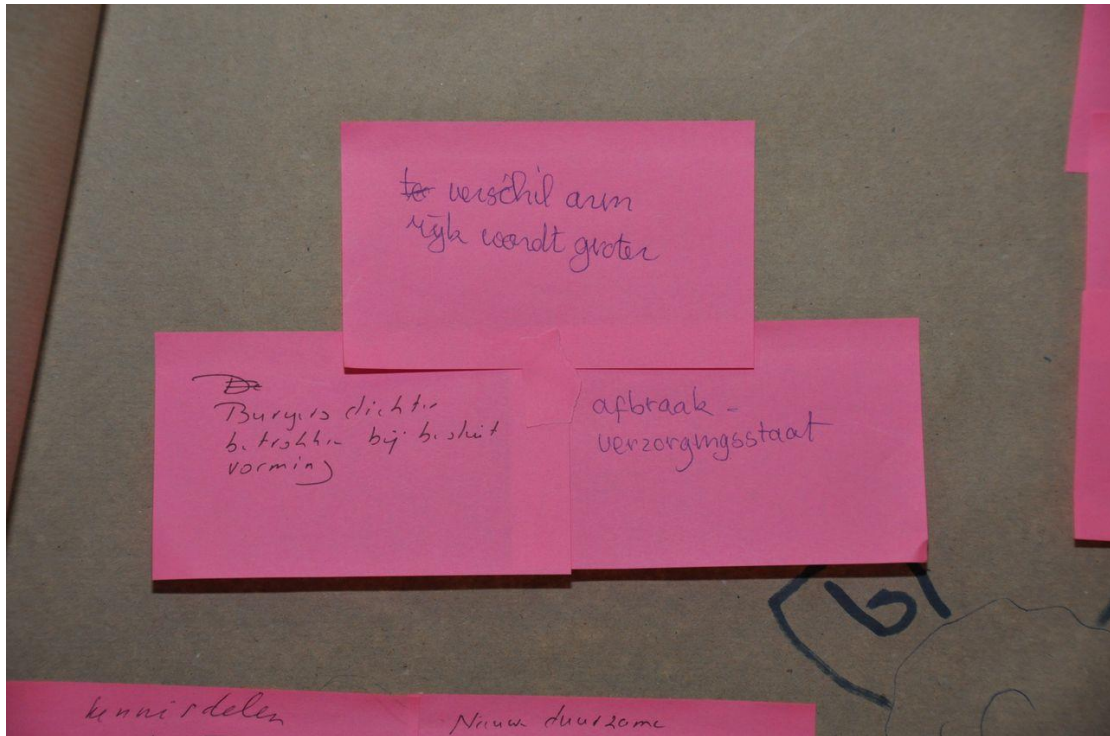 verschil arm
rijk wordt groter
Burgers dichter
betrokken bij besluit
vorming
afbraak -
verzorgingsstaat
kennisdelen
Nieuwe duurzame